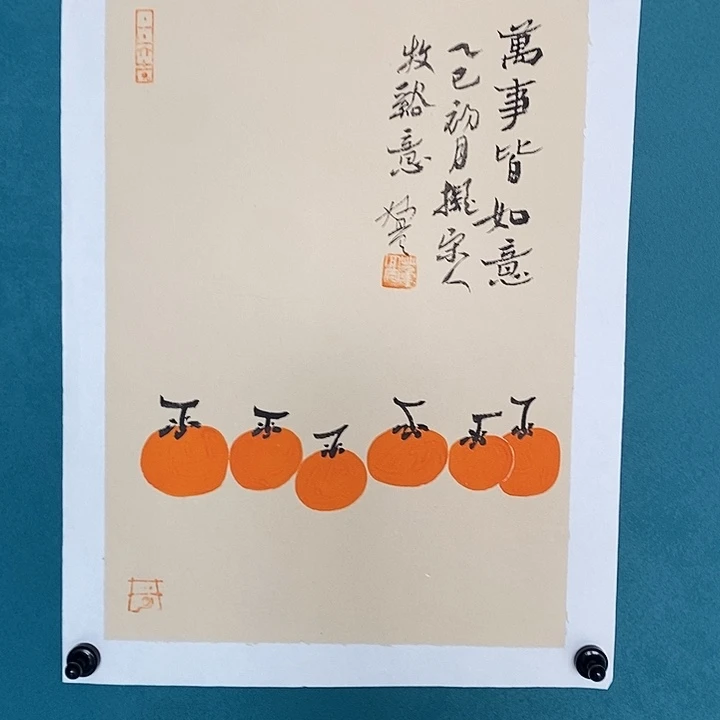 萬事皆如意
乙巳初月擬宋人
牧谿意